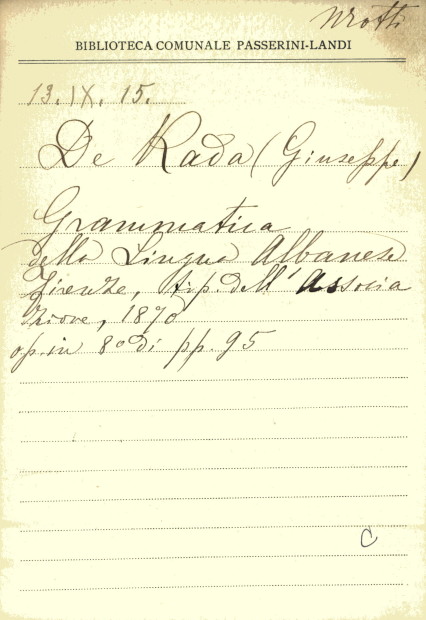 BIBLIOTECA COMUNALE PASSERINI-LANDI
13. IX. 15.
De Rada (Giuseppe)
Grammatica
della Lingua Albanese
Firenze, tip. dell' Associa
zione, 1870
op. in 8º di pp. 95
C